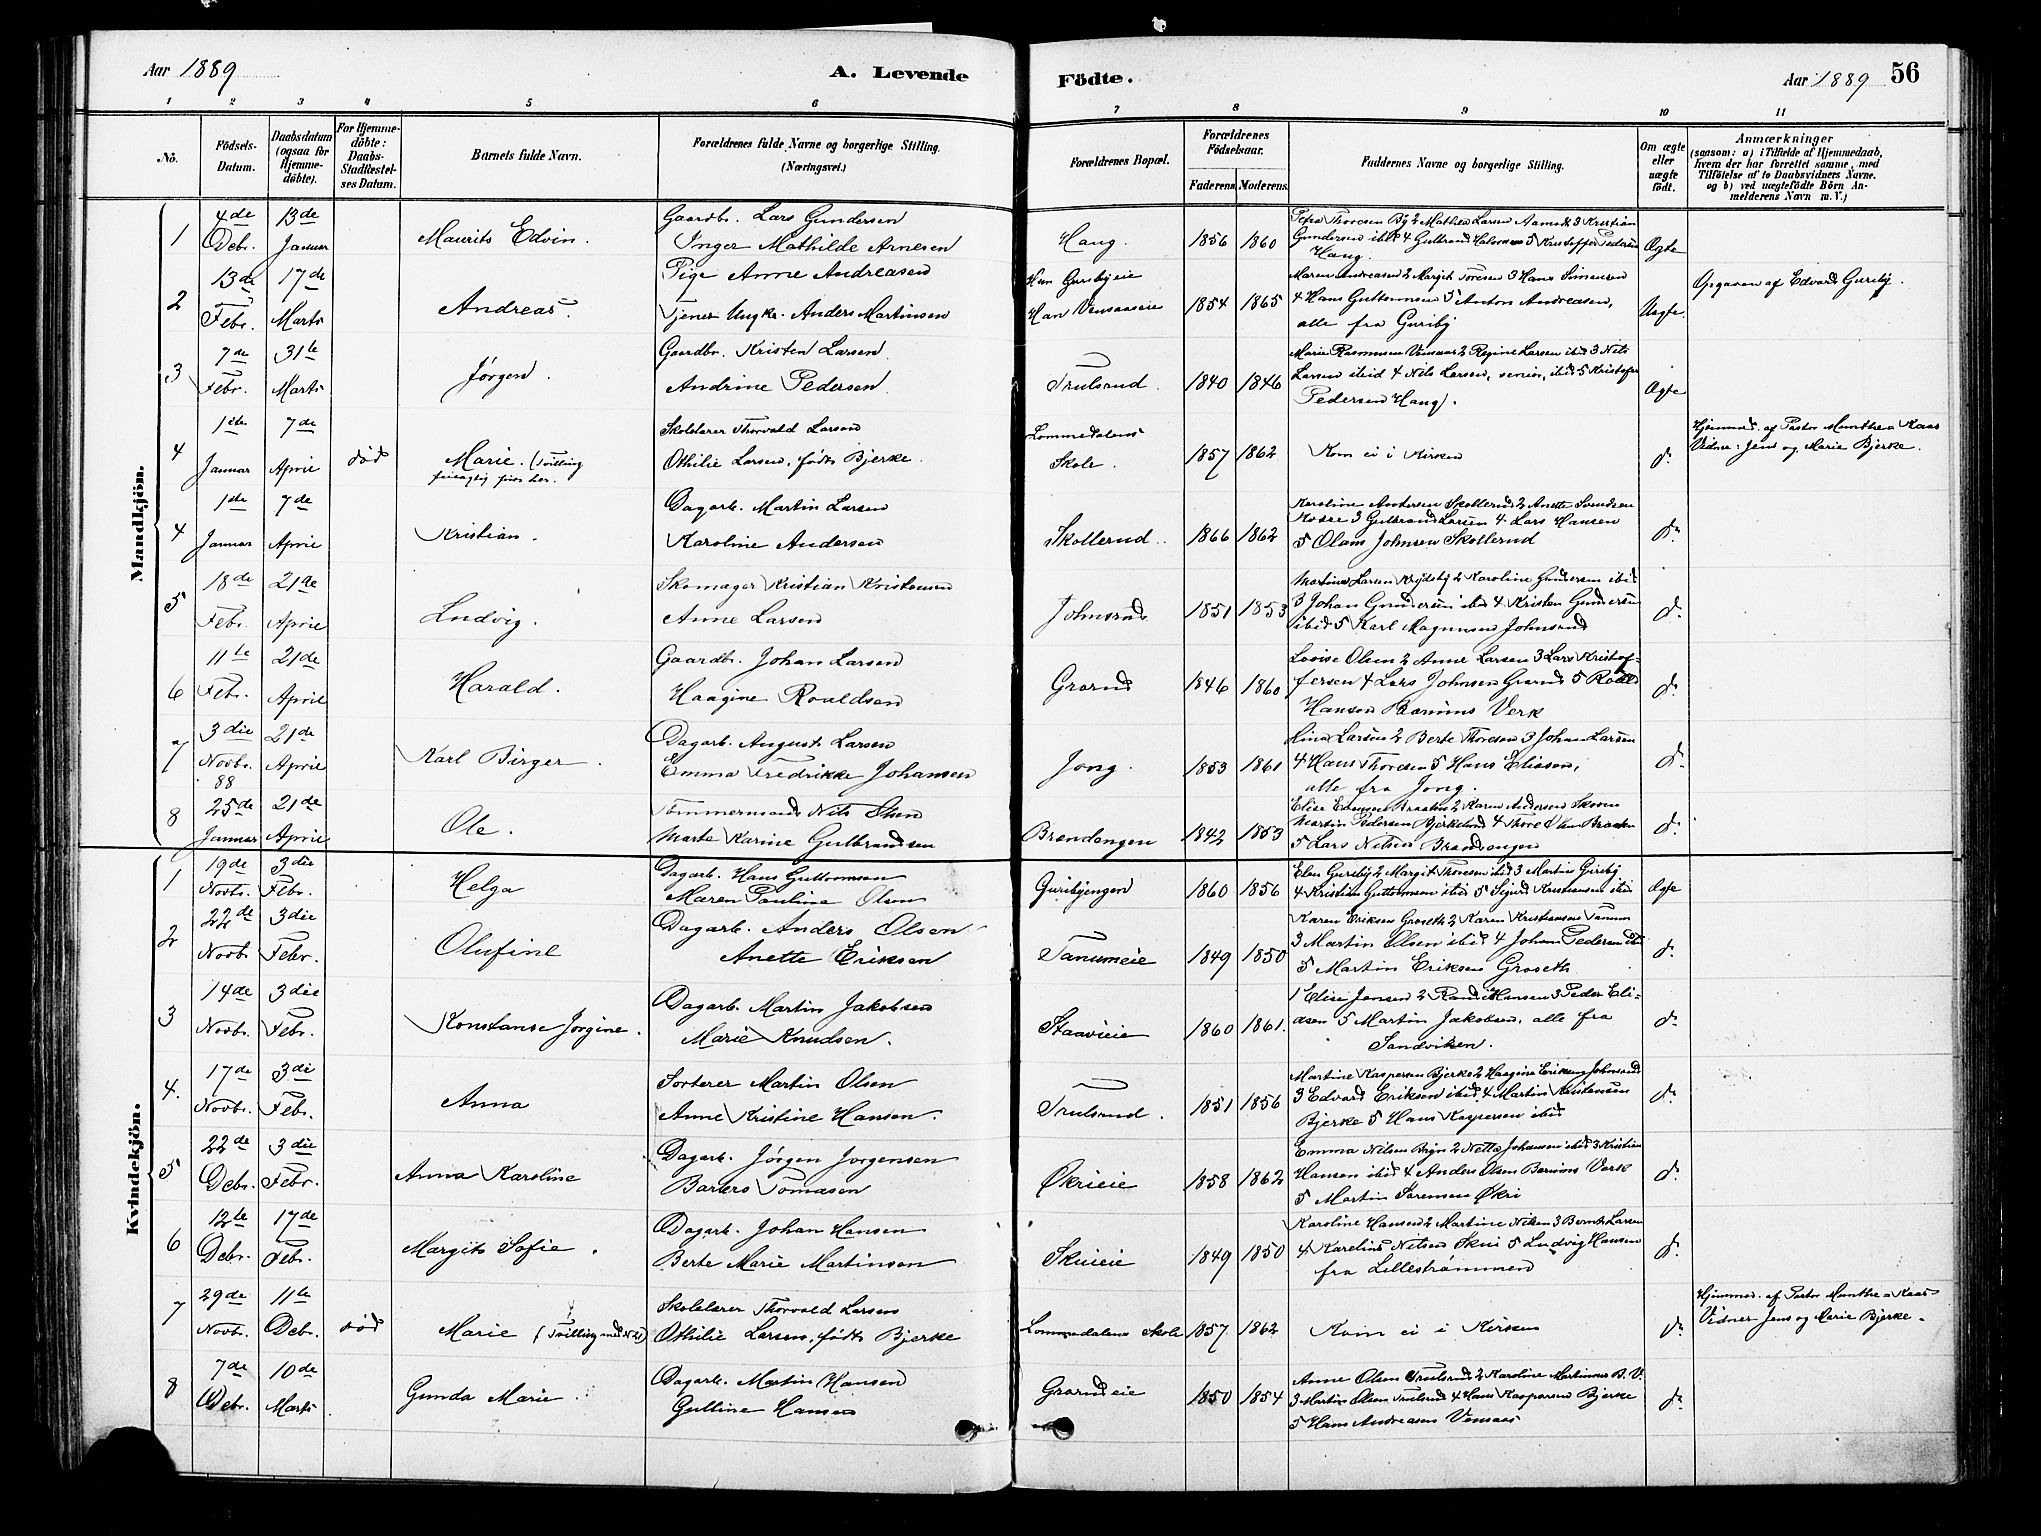 Aar 1889
A. Levende
Födte.
Aar 1889
56
1 2 3 4 5 6 7 8 9 10 11
Nö.
Födsels-Datum.
Daabsdatum (ogsaa for Hjemme-döbte).
For Hjemme-döbte: Daabs-Stadfæstel-ses Datum.
Barnets fulde Navn.
Forældrenes fulde Navne og borgerlige Stilling. (Næringsvei.)
Forældrenes Bopæl.
Forældrenes Födselsaar.
Faderens. Moderens.
Faddernes Navne og borgerlige Stilling.
Om ægte eller uægte födt.
Anmærkninger
(saasom: a) i Tilfælde af Hjemmedaab, hvem der har forrettet samme, med Tilföielse af to Daabsvidners Navne. og b) ved uægtefödte Börn An-melderens Navn m. V.)
Mandkjön.
1 4de Debr. 13de Januar Maurits Edvin. Gaardbr. Lars Gundersen
Inger Mathilde Arnesen Haug. 1856 1860 Ægte
2 13de Febr. 17de Marts Andreas. Pige Anne Andreasen
Tjener Ungk. Anders Martinsen
Hun Guribyeie
Han Vensaaseie 1854 1865
Maren Andreasen 2 Margit Toresen 3 Hans Simensen
4 Hans Guttormsen 5 Anton Andreasen,
alle fra Guriby Uægte. Opgaven af Edvard Guriby.
3 7de Febr. 31te Marts Jørgen. Gaardbr. Kristen Larsen.
Andrine Pedersen Trulsrud. 1840 1846
Marie Rasmussen Vensaas 2 Regine Larsen ibid 3 Nils
Larsen ibid 4 Nils Larsen, senior, ibid 5 Kristofer
Pedersen Haug. Ægte
4 1ste Januar 7de April død Marie. (Tvilling
feilagtig ført her.
Skolelærer Thorvald Larsen
Othilie Larsen, født Bjerke.
Lommedalens
Skole. 1857 1862 Kom ei i Kirken do.
Hjemmed. af Pastor Munthe a Kaas
Vidner: Jens og Marie Bjerke.
4 1ste Januar 7de April Kristian. Dagarb. Martin Larsen
Karoline Andersen Skollerud. 1866 1862
Karoline Andersen Skollerud 2 Anette Svendsen
3 Gulbrand Larsen 4 Lars Hansen
5 Olaus Johnsen Skollerud do.
5 18de Febr. 21de April Ludvig. Skomager Kristian Kristensen
Anne Larsen Johnsrud 1851 1853
Martinus Larsen 2 Karoline Gundersen ibid
3 Johan Gundersen ibid 4 Kristen Gundersen
ibid 5 Karl Magnusen Johnsrud do.
6 11te Febr. 21de April Harald. Gaardbr. Johan Larsen
Haagine Roaldsen Grorud 1846 1860
Lovise Olsen 2 Anne Larsen 3 Lars Kristof-
fersen 4 Lars Johnsen Grorud 5 Roald
Hansen Bærums Verk do.
7 3die Novbr. 88 21de April Karl Birger. Dagarb. August Larsen
Emma Fredrikke Johansen Jong. 1853 1861
Lina Larsen 2 Berte Thoresen 3 Johan Larsen
4 Hans Thoresen 5 Hans Eliasen,
alle fra Jong. do.
8 25de Januar 21de April Ole. Tømmermand Nils Olsen
Marte Karine Gulbrandsen Brendengen 1842 1853
Martin Pedersen Bjerkelund 4 Thore Olsen Braaten
5 Lars Nilsen Brendengen do.
Kvindekjön.
1 19de Novbr. 3die Febr. Helga Dagarb. Hans Guttormsen
Maren Pauline Olsen Guribyengen 1860 1856
Elen Guriby 2 Margit Thoresen ibid 3 Martin Guriby
4 Kristian Guttormsen ibid 5 Sigurd Rasmussen ibid Ægte
2 22de Novbr. 3die Febr. Olufine Dagarb. Anders Olsen
Anette Eriksen Tanumeie 1849 1850
Karen Eriksen Groseth 2 Karen Kristiansen Tanum
3 Martin Olsen ibid 4 Johan Pedersen ibid
5 Martin Eriksen Groseth do.
3 14de Novbr. 3die Febr. Konstanse Jørgine. Dagarb. Martin Jakobsen
Marie Knudsen. Staavieie 1860 1861.
1 Elise Jensen 2 Randi Hansen 3 Peder Eli-
asen 5 Martin Jakobsen, alle fra
Sandviken. do.
4. 17de Novbr. 3die Febr. Anna Sorterer Martin Olsen
Anne Kristine Hansen. Trulsrud. 1851 1856
Martine Kaspersen Bjerke 2 Haagine Eriksen Johnsrud
3 Edvard Eriksen ibid. 4 Martin Kristensen
Bjerke 5 Hans Kaspersen ibid do.
5 22de Debr. 3die Febr. Anna Karoline Dagarb. Jørgen Jørgensen
Barbro Tomasen Økrieie 1858 1862
Emma Nilsen Bryn 2 Netta Johansen ibid 3 Kristian
Hansen ibid 4 Anders Olsen Bærums Verk
5 Martin Sørensen Økri do.
6 12te Debr. 17de Febr. Margit Sofie. Dagarb. Johan Hansen
Berte Marie Martinsen Skuieie 1849 1850
Karoline Hansen 2 Martine Nilsen 3 Bernt Larsen
4 Karelius Nilsen Skui 5 Ludvig Hansen
fra Lillestrømmen do.
7 29de Novbr. 11te Debr. død Marie (Tvilling med No 4) Skolelærer Thorvald Larsen
Othilie Larsen, født Bjerke Lommedalens Skole 1857. 1862 Kom ei i Kirken do.
Hjemmed. af Pastor Munthe a Kaas
Vidner Jens og Marie Bjerke.
8 7de Debr. 10de Marts Gunda Marie. Dagarb. Martin Hansen
Gulline Hansen Grorudeie 1850 1854
Anne Olsen Trulsrud 2 Karoline Martinsen B. V.
3 Martin Olsen Trulsrud 4 Hans Kaspersen Bjerke
5 Hans Andreasen Vensaas do.